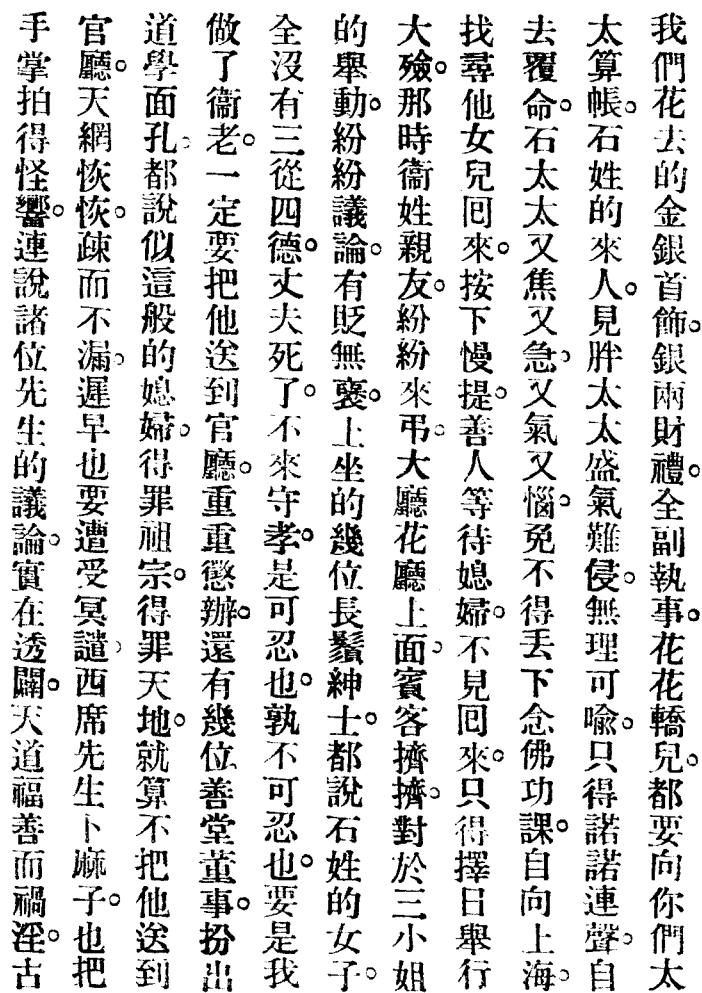 我們花去的金銀首飾。銀兩財禮。全副執事。花花轎兒。都要向你們太
太算帳。石姓的來人。見胖太太盛氣難侵。無理可喻。只得諾諾連聲。自
去覆命。石太太又焦又急。又氣又惱。免不得丢下念佛功課。自向上海。
找尋他女兒回來。按下慢提。善人等待媳婦。不見回來。只得擇日舉行
大殮。那時衞姓親友。紛紛來弔。大廳花廳上面。賓客擠擠。對於三小姐
的舉動。紛紛議論。有貶無褒。上坐的幾位長鬚紳士。都說石姓的女子。
全沒有三從四德。丈夫死了。不來守孝。是可忍也。孰不可忍也。要是我
做了衞老。一定要把他送到官廳。重重懲辦。還有幾位善堂董事。扮出
道學面孔。都說似這般的媳婦。得罪祖宗。得罪天地。就算不把他送到
官廳。天網恢恢。疎而不漏。遲早也要遭受冥譴。西席先生卜麻子。也把
手掌拍得怪響。連說諸位先生的議論。實在透闢。天道福善而禍淫。古